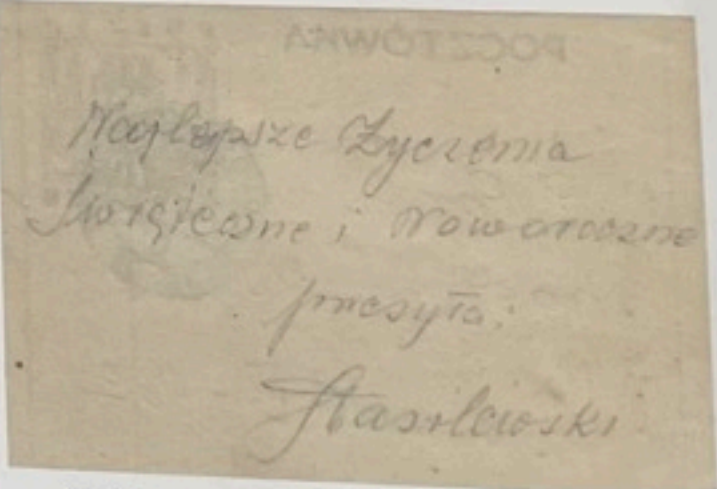 POCZTÓWKA
Najlepsze Życzenia
Świąteczne i Noworoczne
przesyła: